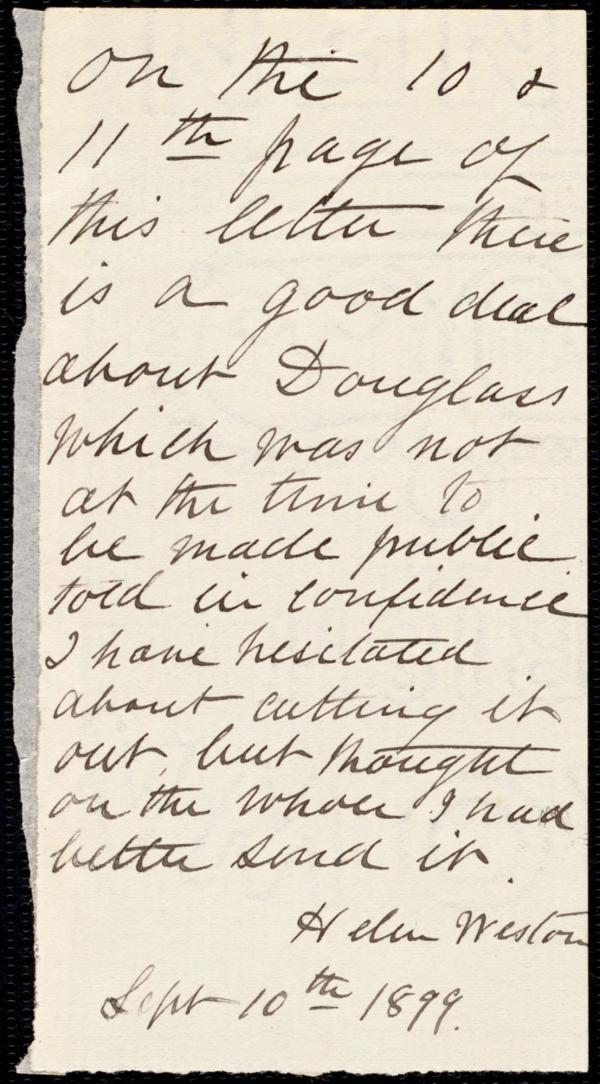 On the 10 &
11th page of
this letter there
is a good deal
about Douglass
which was not
at the time to
be made public
told in confidence
I have hesitated
about cutting it
out, but thought
on the whole I had
better send it.
Helen Weston
Sept 10th 1899.